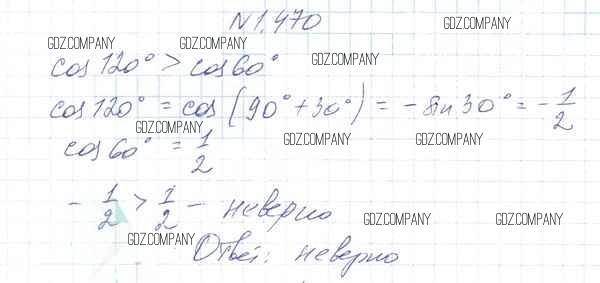 N 1.470
GDZ.COMPANY
GDZ.COMPANY GDZ.COMPANY
GDZ.COMPANY
cos 120° > cos 60°
cos 120° = cos (90° + 30°) = - sin 30° = - 1/2
GDZ.COMPANY
cos 60° = 1/2
GDZ.COMPANY GDZ.COMPANY
- 1/2 > 1/2 - неверно
GDZ.COMPANY GDZ.COMPANY
GDZ.COMPANY
Ответ: неверно